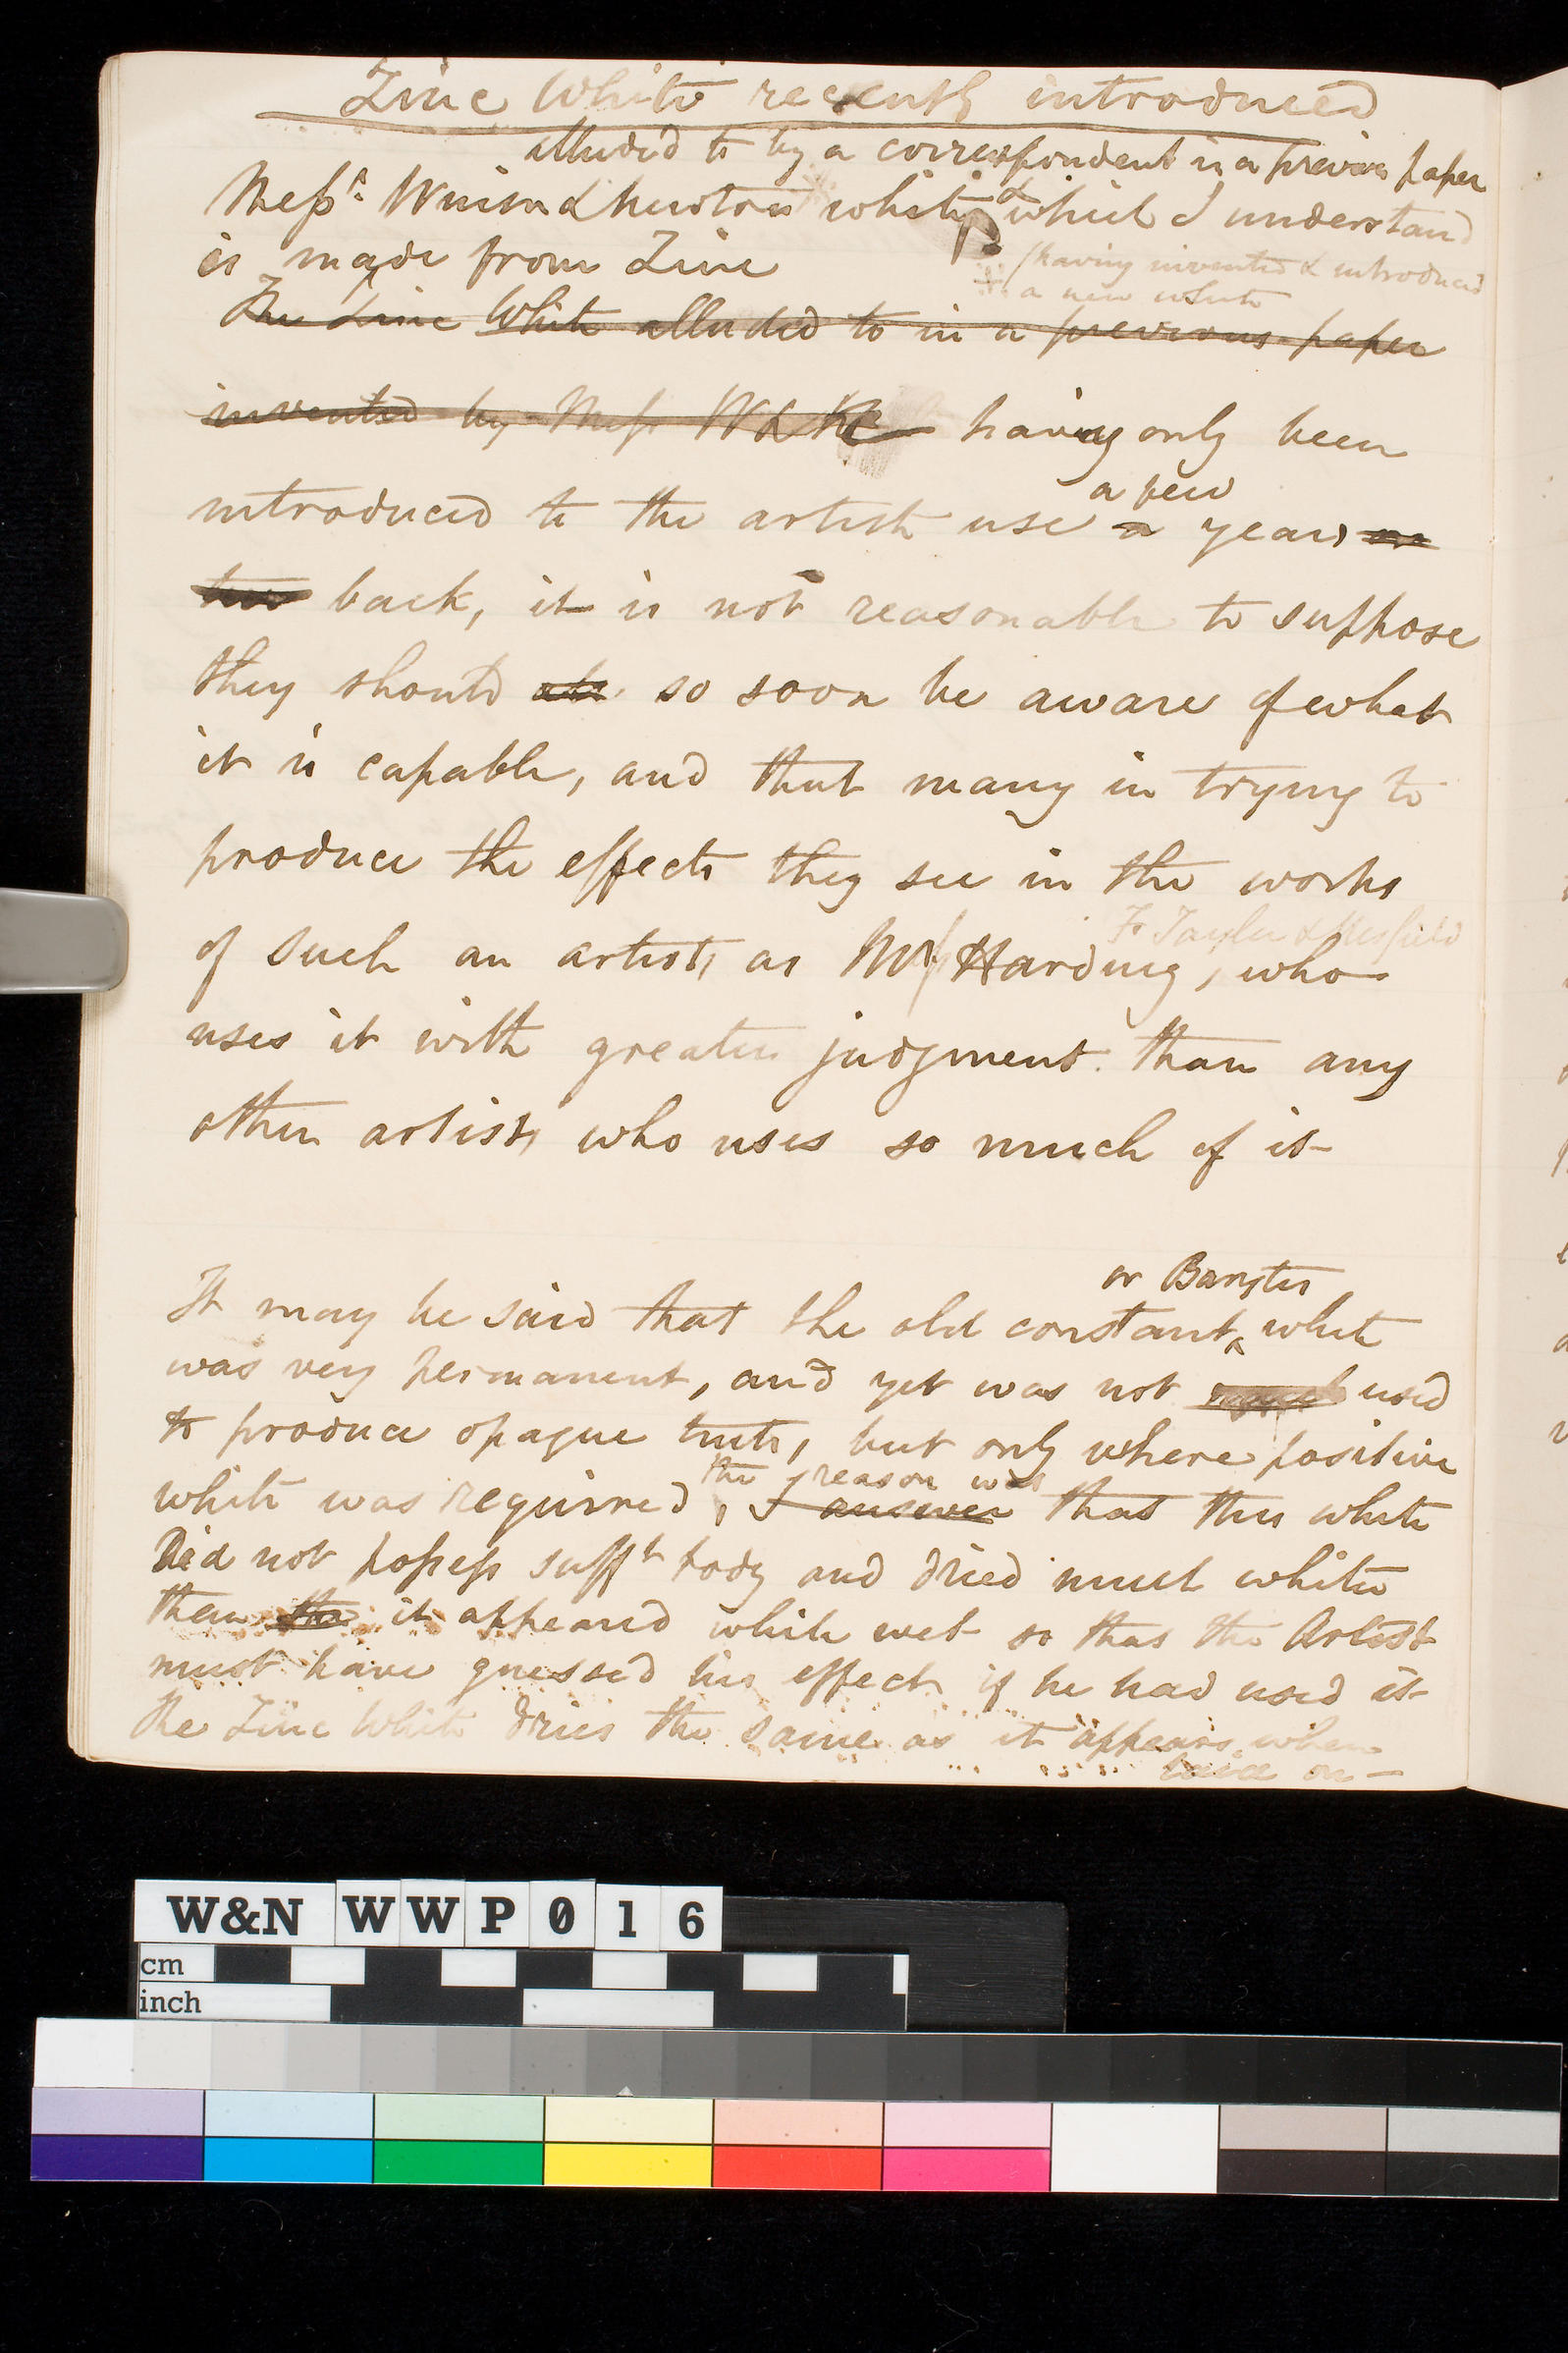 Zinc White recently introduced
alluded to by a correspondent in a previous paper
Messrs. Winsor & Newton white & which I understand
is made from Zinc
(having invented & introduced
a new white
The Zinc White alluded to in a previous paper
invented by Messrs W & N having only been
a few
introduced to the artists use a years or
two back, it is not reasonable to suppose
they should so soon be aware of what
it is capable, and that many in trying to
produce the effects they see in the works
F. Tayler & Nesfield
of such an artists as Mr Harding, who
uses it with greater judgment than any
other artists who uses so much of it
or Barytes
It may be said that the old constant white
was very permanent, and yet was not used
to produce opaque tints, but only where positive
the reason was
white was required, I answer that this white
Did not possess sufft body and dried much whiter
than the it appeared while wet so that the Artist
must have guessed his effect if he had used it
the Zinc White dries the same as it appears when
laid on—
W&N WWP016
cm
inch